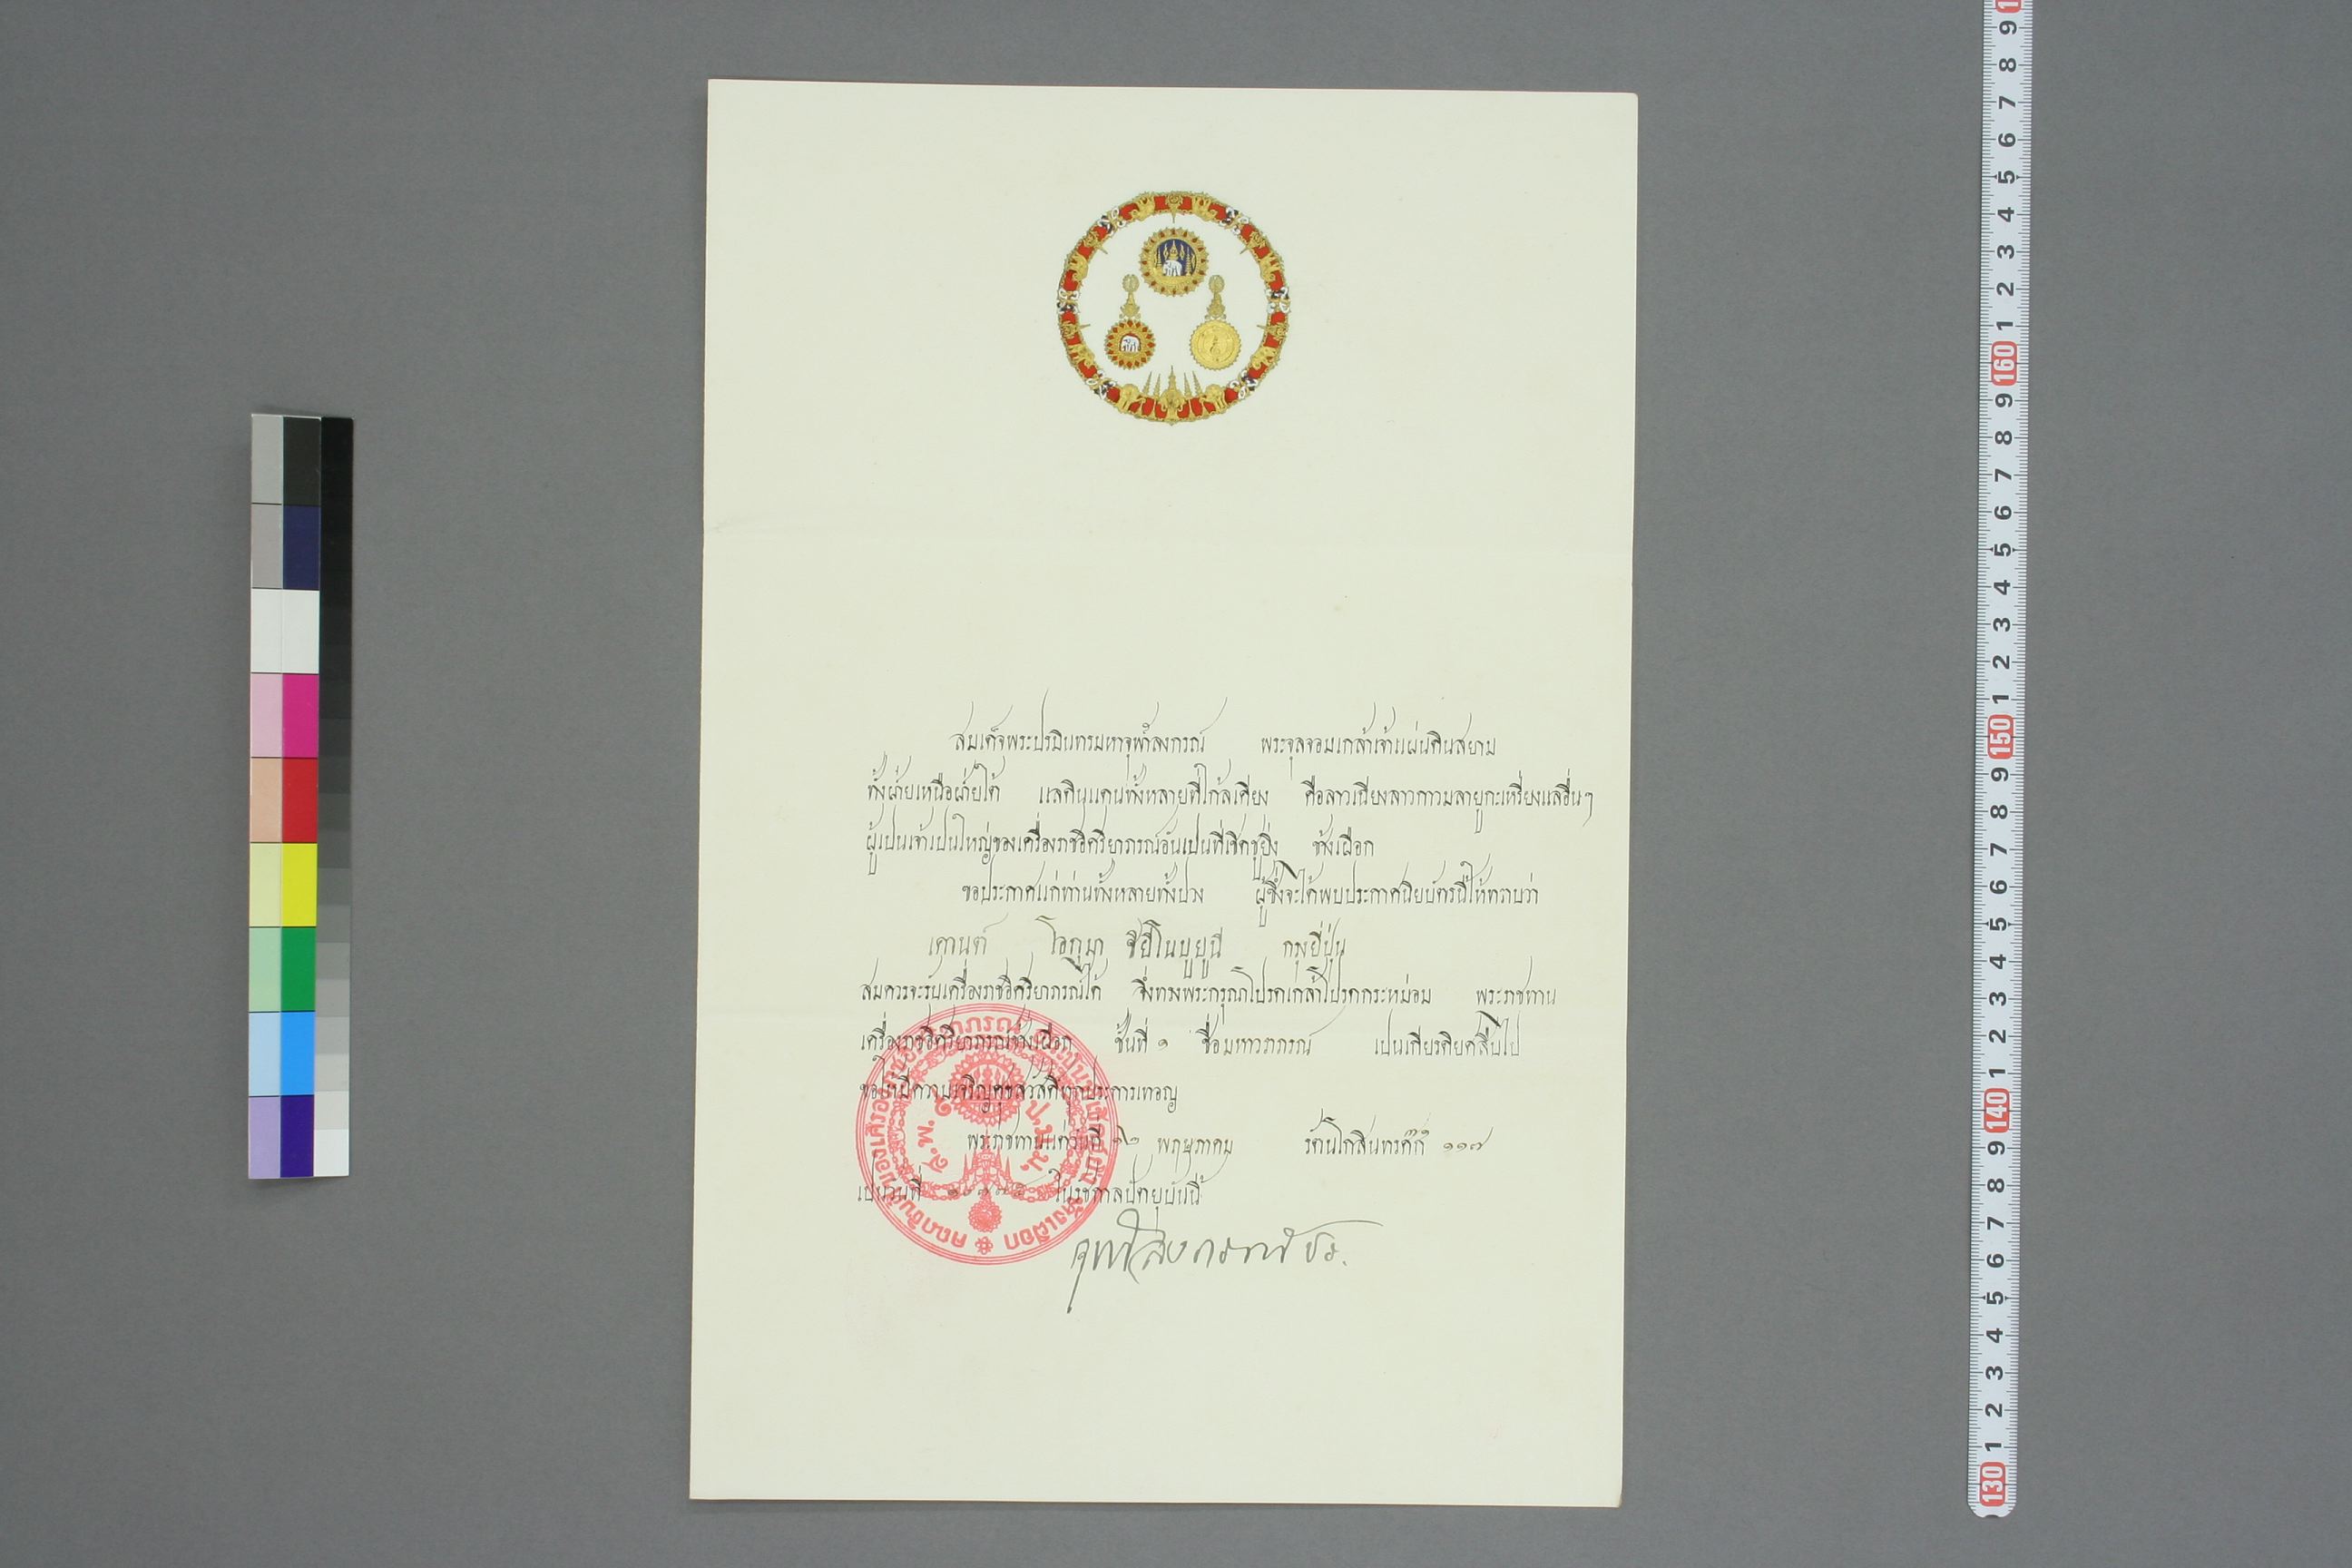 สมเด็จพระปรมินทรมหาจุฬาลงกรณ์ พระจุลจอมเกล้าเจ้าแผ่นดินสยาม
ทั้งฝ่ายเหนือฝ่ายใต้ แลดินแดนทั้งหลายที่ใกล้เคียง คือลาวเฉียงลาวกาวมลายูกะเหรี่ยงแลอื่นๆ
ผู้เปนเจ้าเปนใหญ่ของเครื่องราชอิศริยาภรณ์อันเปนที่เชิดชูยิ่ง ช้างเผือก
ขอประกาศแก่ท่านทั้งหลายทั้งปวง ผู้ซึ่งจะได้พบประกาศนิยบัตรนี้ให้ทราบว่า
เคานต์ โอกูมา ชิยิโนบูยูนี กรุงยี่ปุ่น
สมควรจะรับเครื่องราชอิศริยาภรณ์ได้ จึ่งทรงพระกรุณาโปรดเกล้าโปรดกระหม่อม พระราชทาน
เครื่องราชอิศริยาภรณ์ช้างเผือก ชั้นที่ ๑ ชื่อมหาวราภรณ์ เปนเกียรติยศสืบไป
ขอให้มีความเจริญศุขสวัสดิทุกประการเทอญ
พระราชทานแต่วันที่ พฤษภาคม รัตนโกสินทรศก๊ ๑๑๗
เปนวันที่ ในรัชกาลปัตยุบันนี้